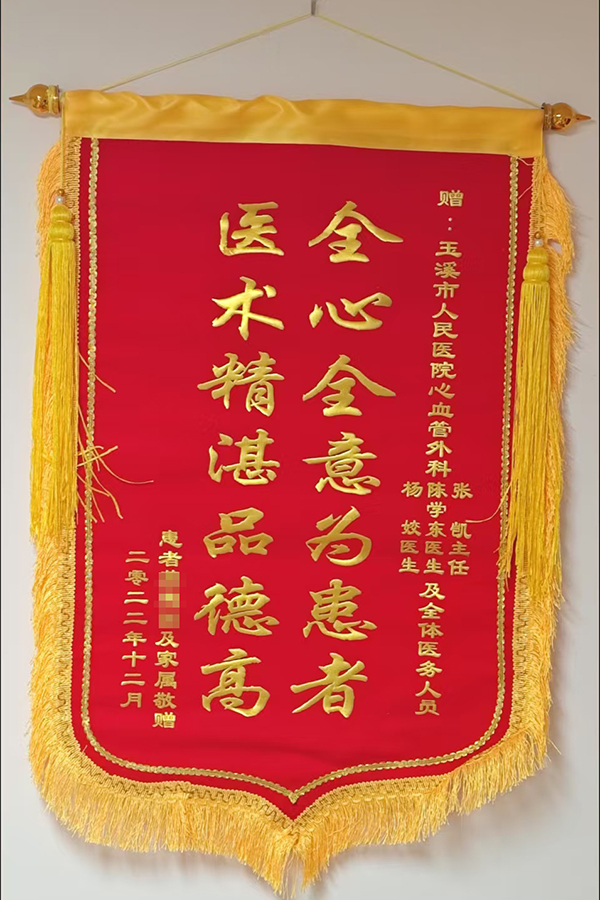 赠：玉溪市人民医院心血管外科
张凯主任
陈学东医生
杨姣医生
及全体医务人员
全心全意为患者
医术精湛品德高
患者
及家属敬赠
二零二二年十二月